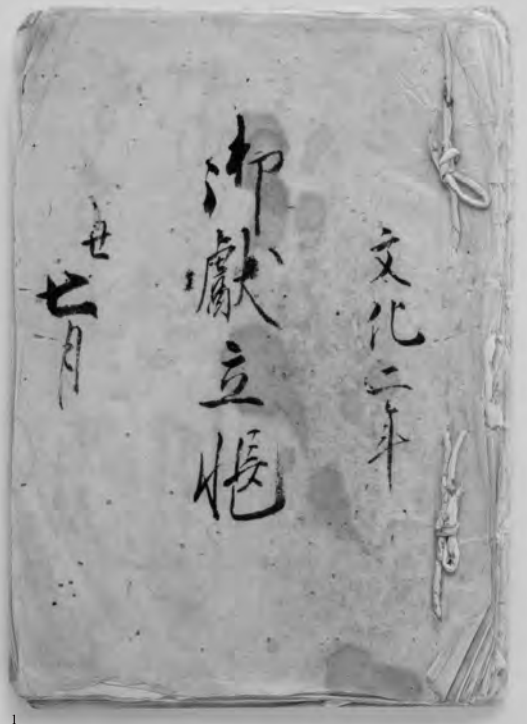 文化二年
御獻立帳
丑七月
1